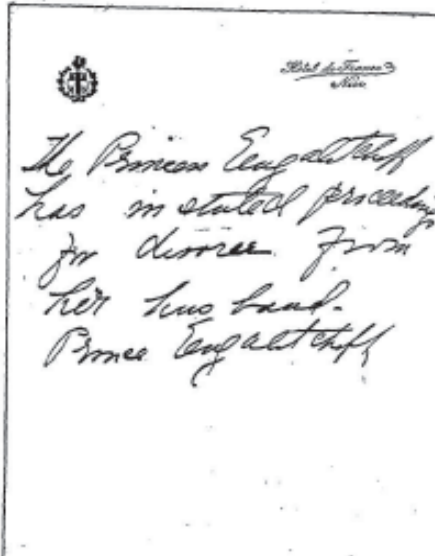 Hôtel de France
Nice
The Princess Engalitcheff
has instuted proceedings
for divorce from
her husband.
Prince Engalitcheff